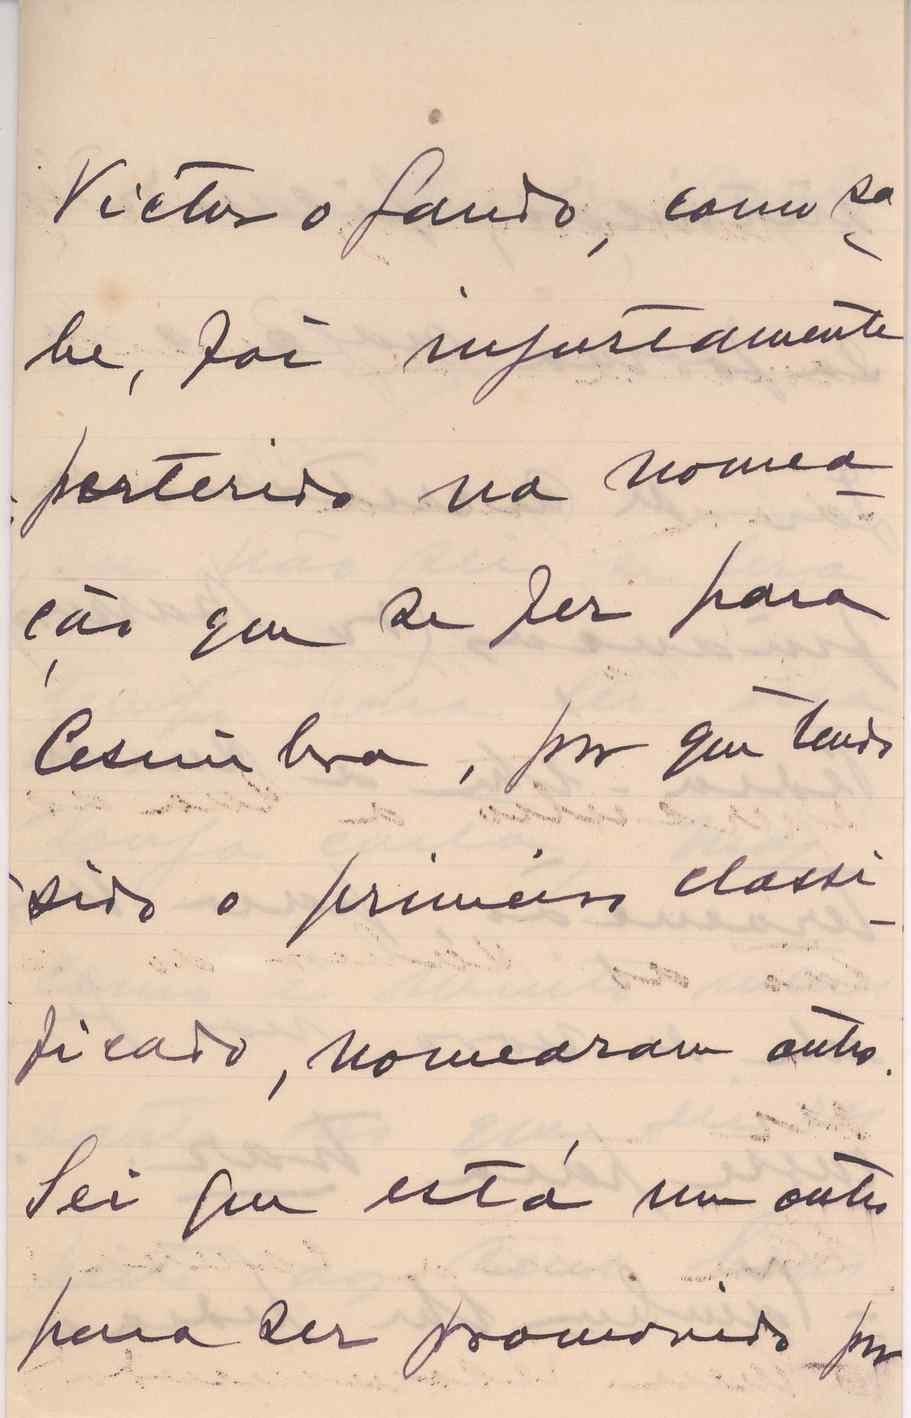 Victor o Gaudo, como sa
be, foi injustamente
preterido na nomea-
ção que se fez para
Cesimbra, por que tendo
sido o primeiro classi-
ficado, nomearam outro.
Sei que está um outro
para ser promovido por